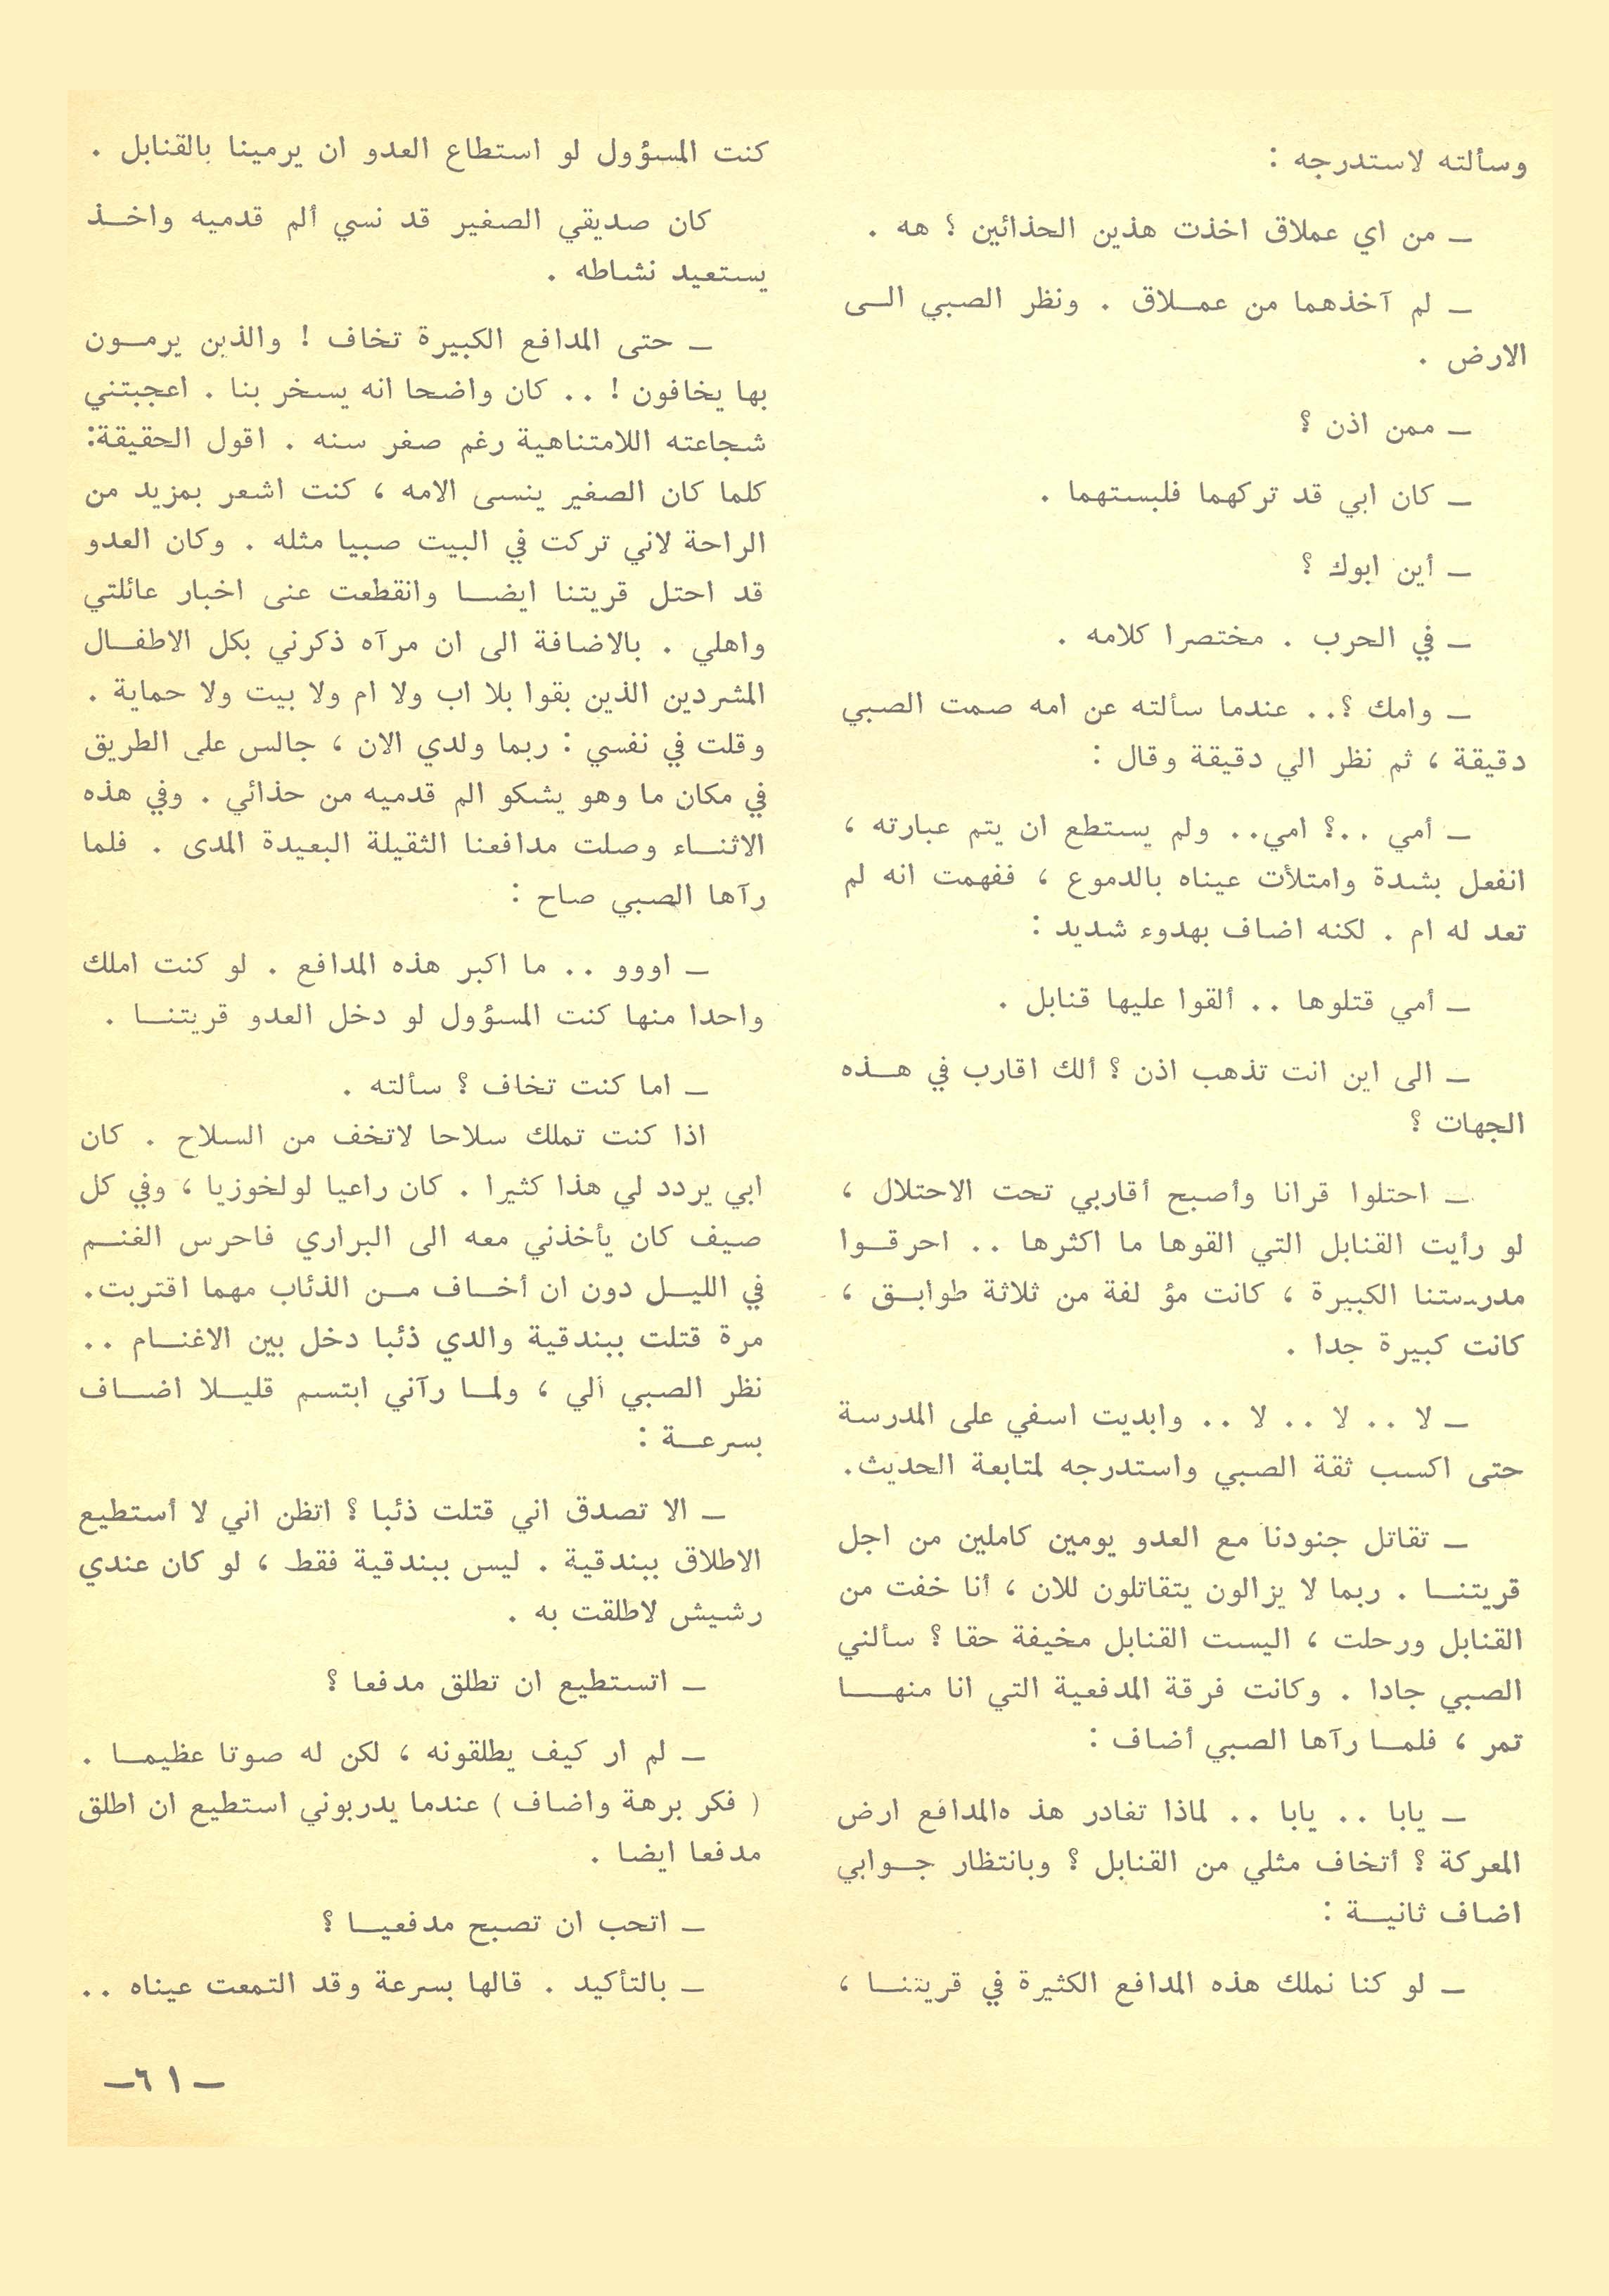 وسألته لاستدرجه :
ـ من اي عملاق اخذت هذين الحذائين ؟ هه .
ـ لم آخذهما من عمـلاق . ونظر الصبي الـى
الارض .
ـ ممن اذن ؟
ـ كان ابي قد تركهما فلبستهما .
ـ أين ابوك ؟
ـ في الحرب . مختصرا كلامه .
ـ وامك ؟.. عندما سألته عن امه صمت الصبي
دقيقة ، ثم نظر الي دقيقة وقال :
ـ أمي ..؟ امي.. ولم يستطع ان يتم عبارته ،
انفعل بشدة وامتلأت عيناه بالدموع ، ففهمت انه لم
تعد له ام . لكنه اضاف بهدوء شديد :
ـ أمي قتلوها .. ألقوا عليها قنابل .
ـ الى اين انت تذهب اذن ؟ ألك اقارب في هـذه
الجهات ؟
ـ احتلوا قرانا وأصبح أقاربي تحت الاحتلال ،
لو رأيت القنابل التي القوها ما اكثرها .. احرقـوا
مدرستنا الكبيرة ، كانت مؤ لفة من ثلاثة طوابـق ،
كانت كبيرة جدا .
ـ لا .. لا .. لا .. وابديت اسفي على المدرسة
حتى اكسب ثقة الصبي واستدرجه لمتابعة الحديث.
ـ تقاتل جنودنا مع العدو يومين كاملين من اجل
قريتنـا . ربما لا يزالون يتقاتلون للان ، أنا خفت من
القنابل ورحلت ، اليست القنابل مخيفة حقا ؟ سألني
الصبي جادا . وكانت فرقة المدفعية التي انا منهـا
تمر ، فلمـا رآها الصبي أضاف :
ـ يابا .. يابا .. لماذا تغادر هذ ەالمدافع ارض
المعركة ؟ أتخاف مثلي من القنابل ؟ وبانتظار جـوابي
اضاف ثانيـة :
ـ لو كنا نملك هذه المدافع الكثيرة في قريتنـا ،
كنت المسؤول لو استطاع العدو ان يرمينا بالقنابل .
كان صديقي الصغير قد نسي ألم قدميه واخـذ
يستعيد نشاطه .
ـ حتى المدافع الكبيرة تخاف ! والذين يرمـون
بها يخافون ! .. كان واضحا انه يسخر بنا . اعجبتني
شجاعته اللامتناهية رغم صغر سنه . اقول الحقيقة:
كلما كان الصغير ينسى الامه ، كنت اشعر بمزيد من
الراحة لاني تركت في البيت صبيا مثله . وكان العدو
قد احتل قريتنا ايضـا وانقطعت عنى اخبار عائلتي
واهلي . بالاضافة الى ان مرآه ذكرني بكل الاطفـال
المشردين الذين بقوا بلا اب ولا ام ولا بيت ولا حماية .
وقلت في نفسي : ربما ولدي الان ، جالس على الطريق
في مكان ما وهو يشكو الم قدميه من حذائي . وفي هذه
الاثنـاء وصلت مدافعنا الثقيلة البعيدة المدى . فلما
رآها الصبي صاح :
ـ اووو .. ما اكبر هذه المدافع . لو كنت املك
واحدا منها كنت المسؤول لو دخل العدو قريتنـا .
ـ اما كنت تخاف ؟ سألته .
اذا كنت تملك سلاحا لاتخف من السلاح . كان
ابي يردد لي هذا كثيرا . كان راعيا لولخوزيا ، وفي كل
صيف كان يأخذني معه الى البراري فاحرس الغنـم
في الليـل دون ان أخـاف مـن الذئاب مهما اقتربت.
مرة قتلت ببندقية والدي ذئبا دخل بين الاغنـام ..
نظر الصبي ألي ، ولمـا رآني ابتسم قليـلا اضـاف
بسرعـة :
ـ الا تصدق اني قتلت ذئبا ؟ اتظن اني لا أستطيع
الاطلاق ببندقية . ليس ببندقية فقط ، لو كان عندي
رشيش لاطلقت به .
ـ اتستطيع ان تطلق مدفعا ؟
ـ لم ار كيف يطلقونه ، لكن له صوتا عظيمـا .
( فكر برهة واضاف ) عندما يدربوني استطيع ان اطلق
مدفعا ايضا .
ـ اتحب ان تصبح مدفعيـا ؟
ـ بالتأكيد . قالها بسرعة وقد التمعت عيناه ..
ـ٦١ـ